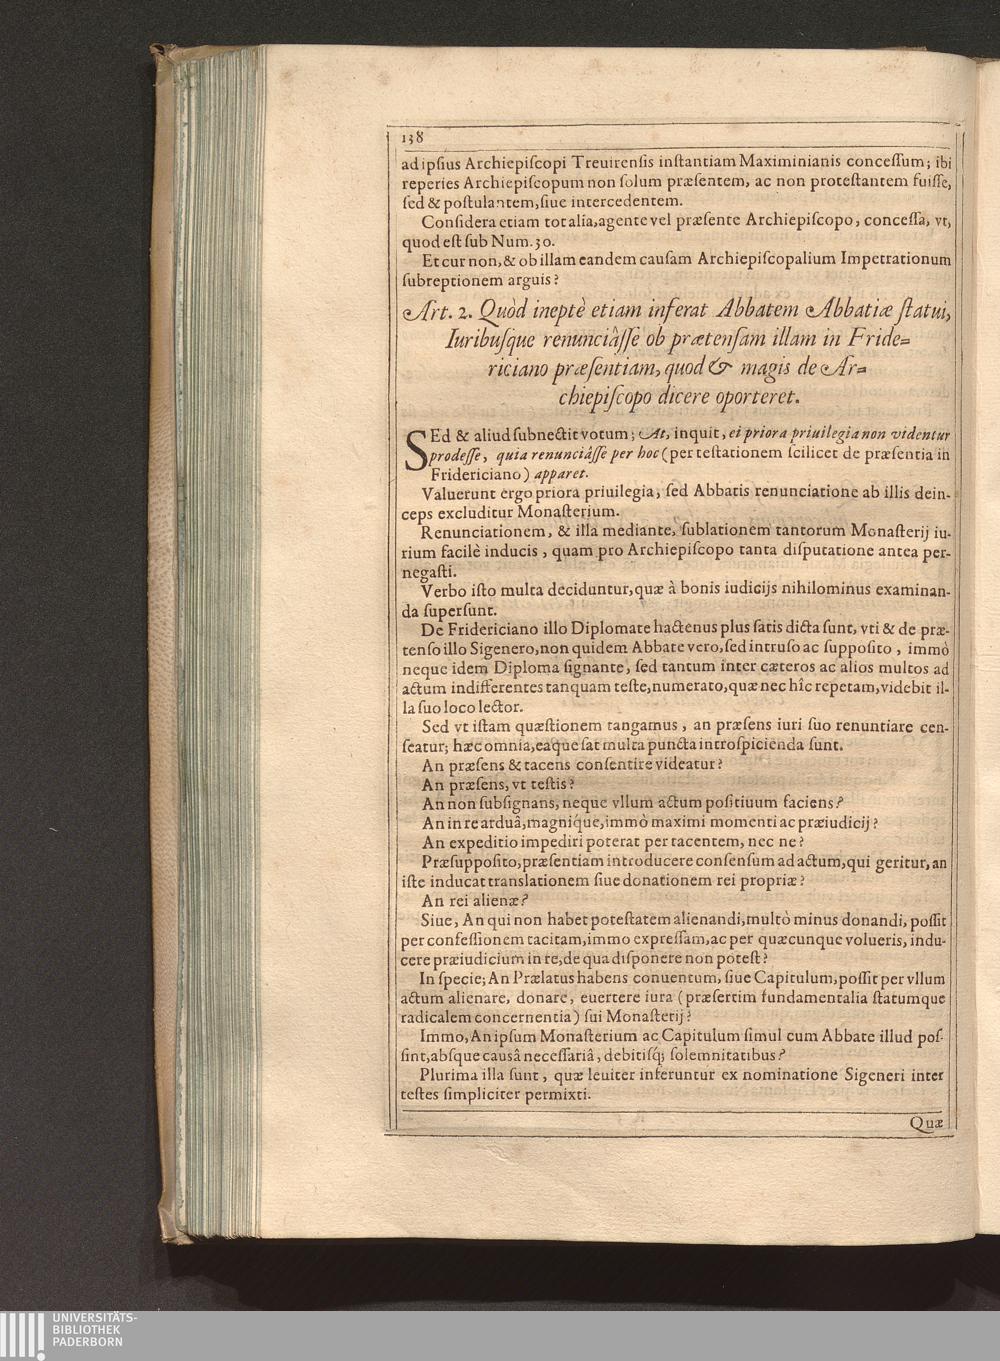 138
ad ipſius Archiepiſcopi Treuirenſis inſtantiam Maximinianis conceſſum; ibi
reperies Archiepiſcopum non ſolum præſentem, ac non proteſtantem fuiſſe,
ſed & poſtulantem, ſiue intercedentem.
Conſidera etiam tot alia, agente vel præſente Archiepiſcopo, conceſſa, vt,
quod eſt ſub Num. 30.
Et cur non, & ob illam eandem cauſam Archiepiſcopalium Impetrationum
ſubreptionem arguis?
Art. 2. Quòd ineptè etiam inferat Abbatem Abbatiæ ſtatui,
Iuribuſque renunciâſſe ob prætenſam illam in Fride=
riciano præſentiam, quod & magis de Ar=
chiepiſcopo dicere oporteret.
SEd & aliud ſubnectit votum; At, inquit, ei priora priuilegia non videntur
prodeſſe, quia renunciâſſe per hoc (per teſtationem ſcilicet de præſentia in
Fridericiano) apparet.
Valuerunt ergo priora priuilegia, ſed Abbatis renunciatione ab illis dein-
ceps excluditur Monaſterium.
Renunciationem, & illa mediante, ſublationem tantorum Monaſterij iu-
rium facilè inducis, quam pro Archiepiſcopo tanta diſputatione antea per-
negaſti.
Verbo iſto multa deciduntur, quæ à bonis iudicijs nihilominus examinan-
da ſuperſunt.
De Fridericiano illo Diplomate hactenus plus ſatis dicta ſunt, vti & de præ-
tenſo illo Sigenero, non quidem Abbate vero, ſed intruſo ac ſuppoſito, immò
neque idem Diploma ſignante, ſed tantum inter cæteros ac alios multos ad
actum indifferentes tanquam teſte, numerato, quæ nec hîc repetam, videbit il-
la ſuo loco lector.
Sed vt iſtam quæſtionem tangamus, an præſens iuri ſuo renuntiare cen-
ſeatur; hæc omnia, eaque ſat multa puncta introſpicienda ſunt.
An præſens & tacens conſentire videatur?
An præſens, vt teſtis?
An non ſubſignans, neque vllum actum poſitiuum faciens?
An in re arduâ, magnique, immò maximi momenti ac præiudicij?
An expeditio impediri poterat per tacentem, nec ne?
Præſuppoſito, præſentiam introducere conſenſum ad actum, qui geritur, an
iſte inducat translationem ſiue donationem rei propriæ?
An rei alienæ?
Siue, An qui non habet poteſtatem alienandi, multò minus donandi, poſſit
per confeſſionem tacitam, immo expreſſam, ac per quæcunque volueris, indu-
cere præiudicium in re, de qua diſponere non poteſt?
In ſpecie; An Prælatus habens conuentum, ſiue Capitulum, poſſit per vllum
actum alienare, donare, euertere iura (præſertim fundamentalia ſtatumque
radicalem concernentia) ſui Monaſterij?
Immo, An ipſum Monaſterium ac Capitulum ſimul cum Abbate illud poſ-
ſint, abſque causâ neceſſariâ, debitiſq; ſolemnitatibus?
Plurima illa ſunt, quæ leuiter inferuntur ex nominatione Sigeneri inter
teſtes ſimpliciter permixti.
Quæ
UNIVERSITÄTS-
BIBLIOTHEK
PADERBORN